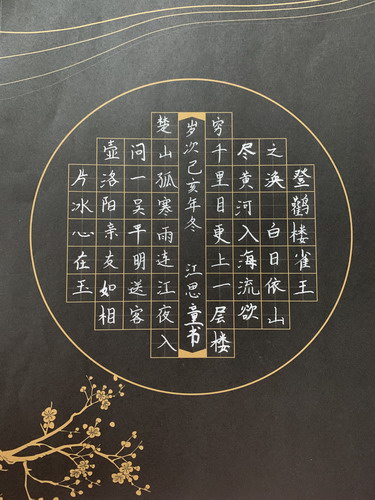 登鹳楼雀王
之涣 白日依山
尽黄河入海流欲
穷千里目更上一层楼
岁次己亥年冬 江思童书
楚山孤寒雨连江夜入
问一吴平明送客
壶洛阳亲友如相
片冰心在玉